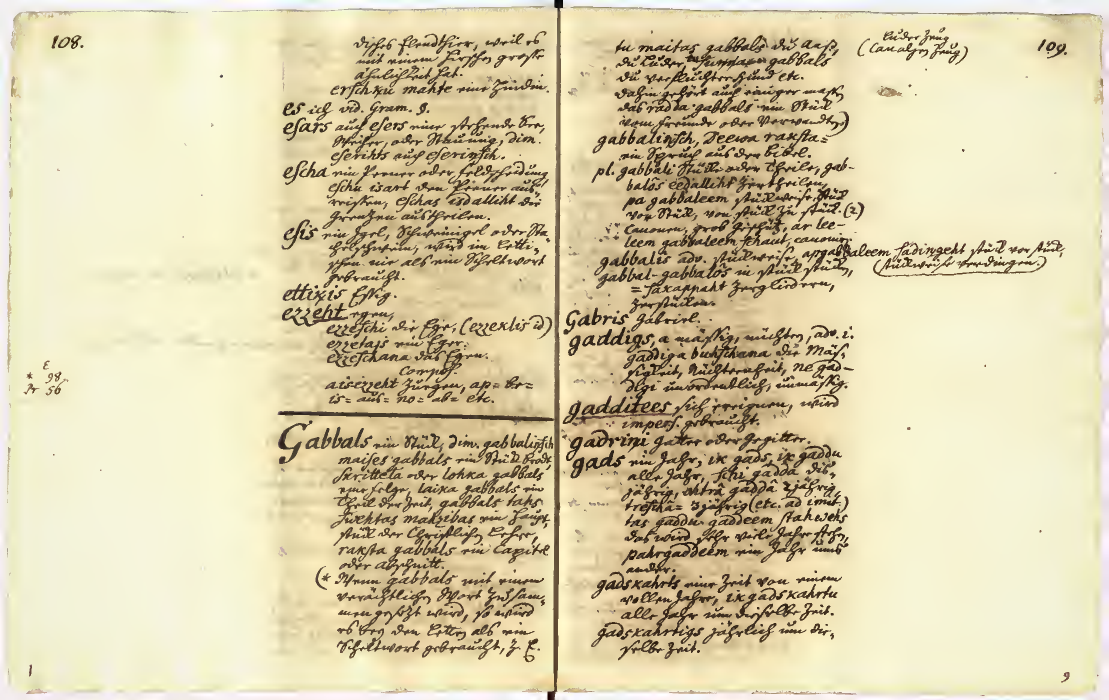 108.
disches Elendthier, weil es
mit einem Hirsche große
ähnlichkeit hat.
erschxu mahte eine Hindin.
es ich vid. Gram. §.
esars auch esers eine stehende See,
Weiher, oder Stauung, dim.
eserihts auch eserinsch.
escha ein Peener oder feldscheidung
eschu isart den Peener auf„
reissen, eschas isdalliht die
Grenzen austheilen.
esis ein Igel, Schweinigel oder Sta„
chelschwein, wird im Letti„
schen nie als ein Scheltwort
gebraucht.
ettixis Essig.
ezzeht egen,
ezzeschi die Ege, (ezzexlis id)
ezzetajs ein Eger.
ezzeschana das Egen.
Compos.
aisezzeht zuegen, ap= be=
is= aus= no= ab= etc.
* 98.
Pr 56
Gabbals ein Stück, dim. gabbalinsch
maises gabbals ein Stück Brodt,
skrittela oder lohka gabbals
eine felge, laika gabbals ein
Theil der Zeit, gabbals tahs
swehtas mahzibas ein Haupt„
stück der Christlichen Lehre,
raksta gabbals ein Capitel
oder abschnitt.
(* Wenn gabbals mit einem
verächtlichen Wort zusam„
men gesetzt wird, so wird
es bey den Letten als ein
Scheltwort gebraucht, z. E.
1
109.
tu maitas gabbals du Aaß,
du Luder, gabbals
du verfluchter Hund etc.
dahin gehört auch einiger maß,
das radda gabbals ein Stück
vom freunde oder Verwandte)
Luder Zeug
(Canaljen Zeug)
gabbalinsch, Deewa raksta=
ein Spruch aus der Bibel.
pl. gabbali Stücke oder Theile, gab-
balôs eedalliht Zertheilen,
pa gabbaleem stückweise, Stück
vor Stück, von stück zu stück. (2)
Canonen, grob Geschütz, ar lee-
leem gabbaleem schaut, canonir
gabbalis adv. stückweise, apgabbaleem sadingeht stück vor stück,
(stückweise verdingen.)
gabbal-gabbalôs in stück stück,
= saxappaht Zergliedern,
Zerstücken.
Gabris Gabriel.
gaddigs, a mässig, nüchtern, adv. i.
gaddiga buhschana die Mäs„
sigkeit, Nüchternheit, ne gad-
digi unordentlich, unmässig.
gadditees sich ereignen, wird
impers. gebraucht.
gadrini gatter oder Gegitter.
gads ein Jahr, ix gads, ix gaddu
alle Jahr, schi gadda dies„
jährig, ohtrâ gaddâ 2jährig,
treschâ= 3jährig (etc. ad imit.)
tas gaddu gaddeem stahwehs
das wird sehr viele Jahr stehn,
pahrgaddeem ein Jahr ums
ander.
gadskahrts eine Zeit von einem
vollen Jahre, ix gadskahrtu
alle Jahr um dieselbe Zeit.
gadskahrtigs jährlich um die„
selbe Zeit.
9